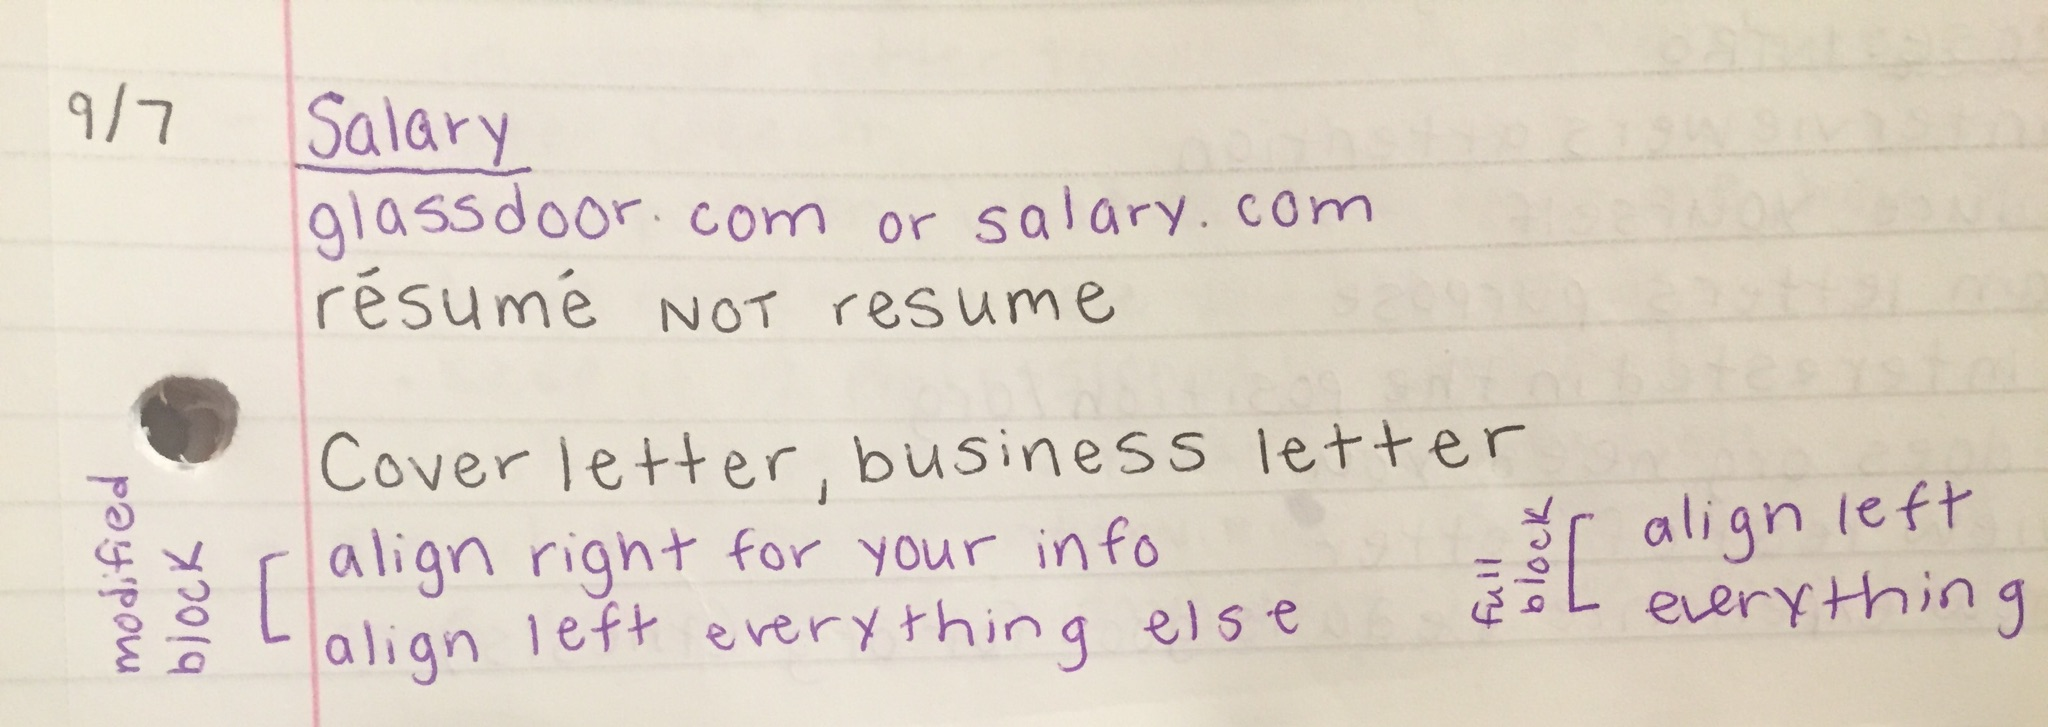 9/7
Salary
glassdoor.com or salary.com
résumé NOT resume
Cover letter, business letter
modified
block
align right for your info
align left everything else
full
block
align left
everything